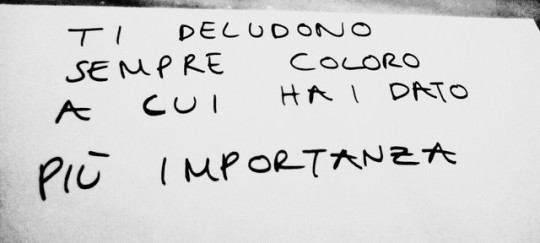 TI DELUDONO
SEMPRE COLORO
A CUI HAI DATO
PIÙ IMPORTANZA